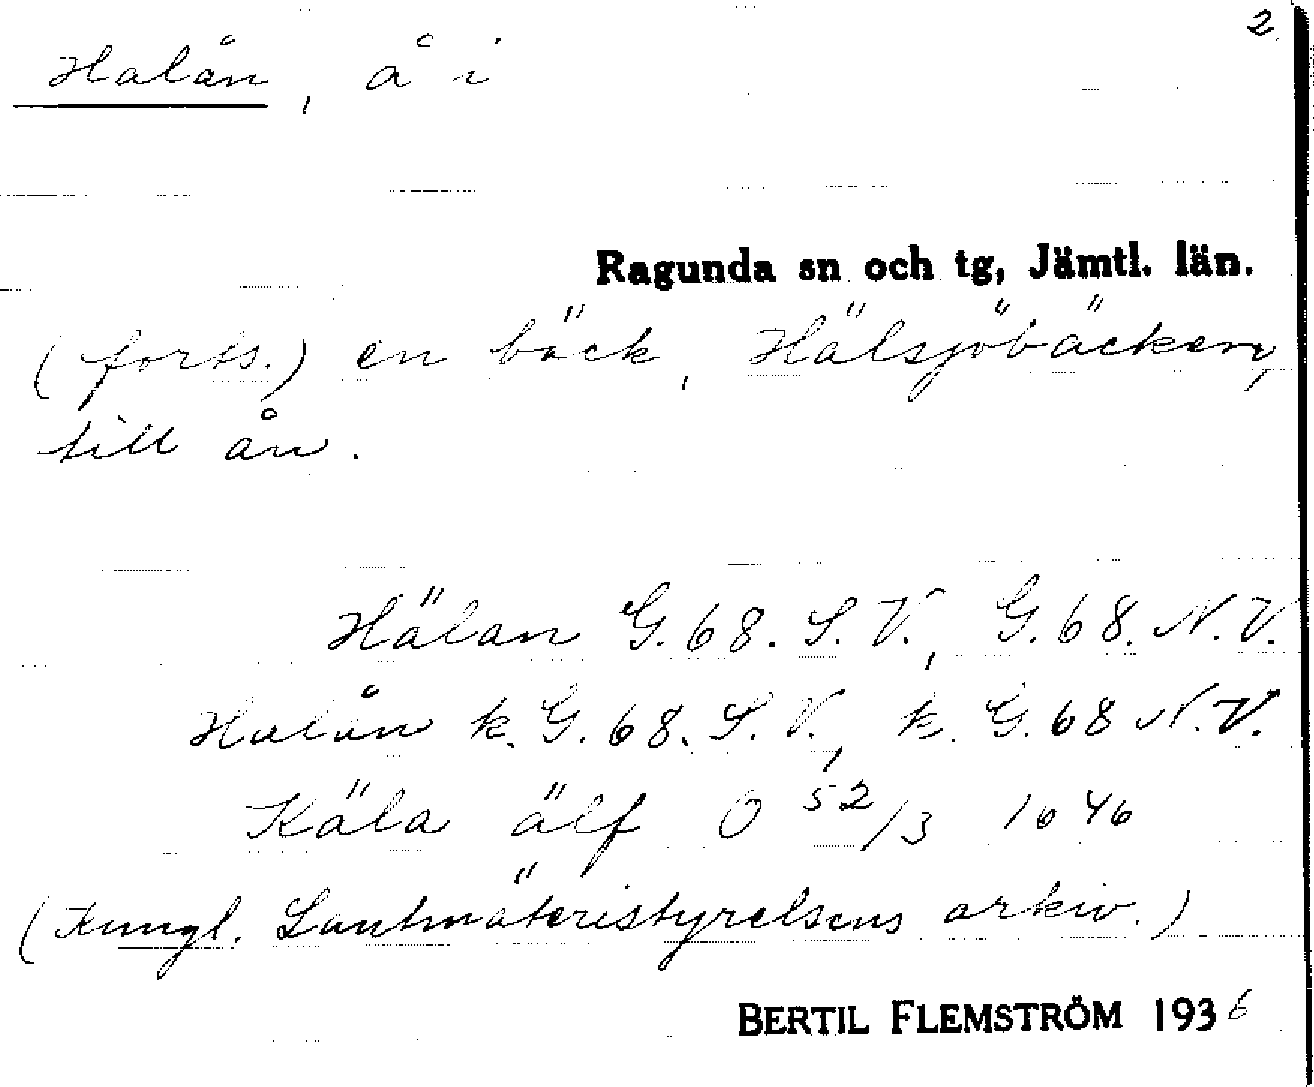 2
Halån, å i
Ragunda sn och tg, Jämtl. län.
(forts.) en bäck, Hälsjöbäcken,
till ån.
Hälan G. 68. S. V., G. 68. N. V.
Halån k. G. 68. S. V., k. G. 68 N. V.
Käla älf O 52/3 1646
(Kungl. Lantmäteristyrelsens arkiv.)
BERTIL FLEMSTRÖM 1936